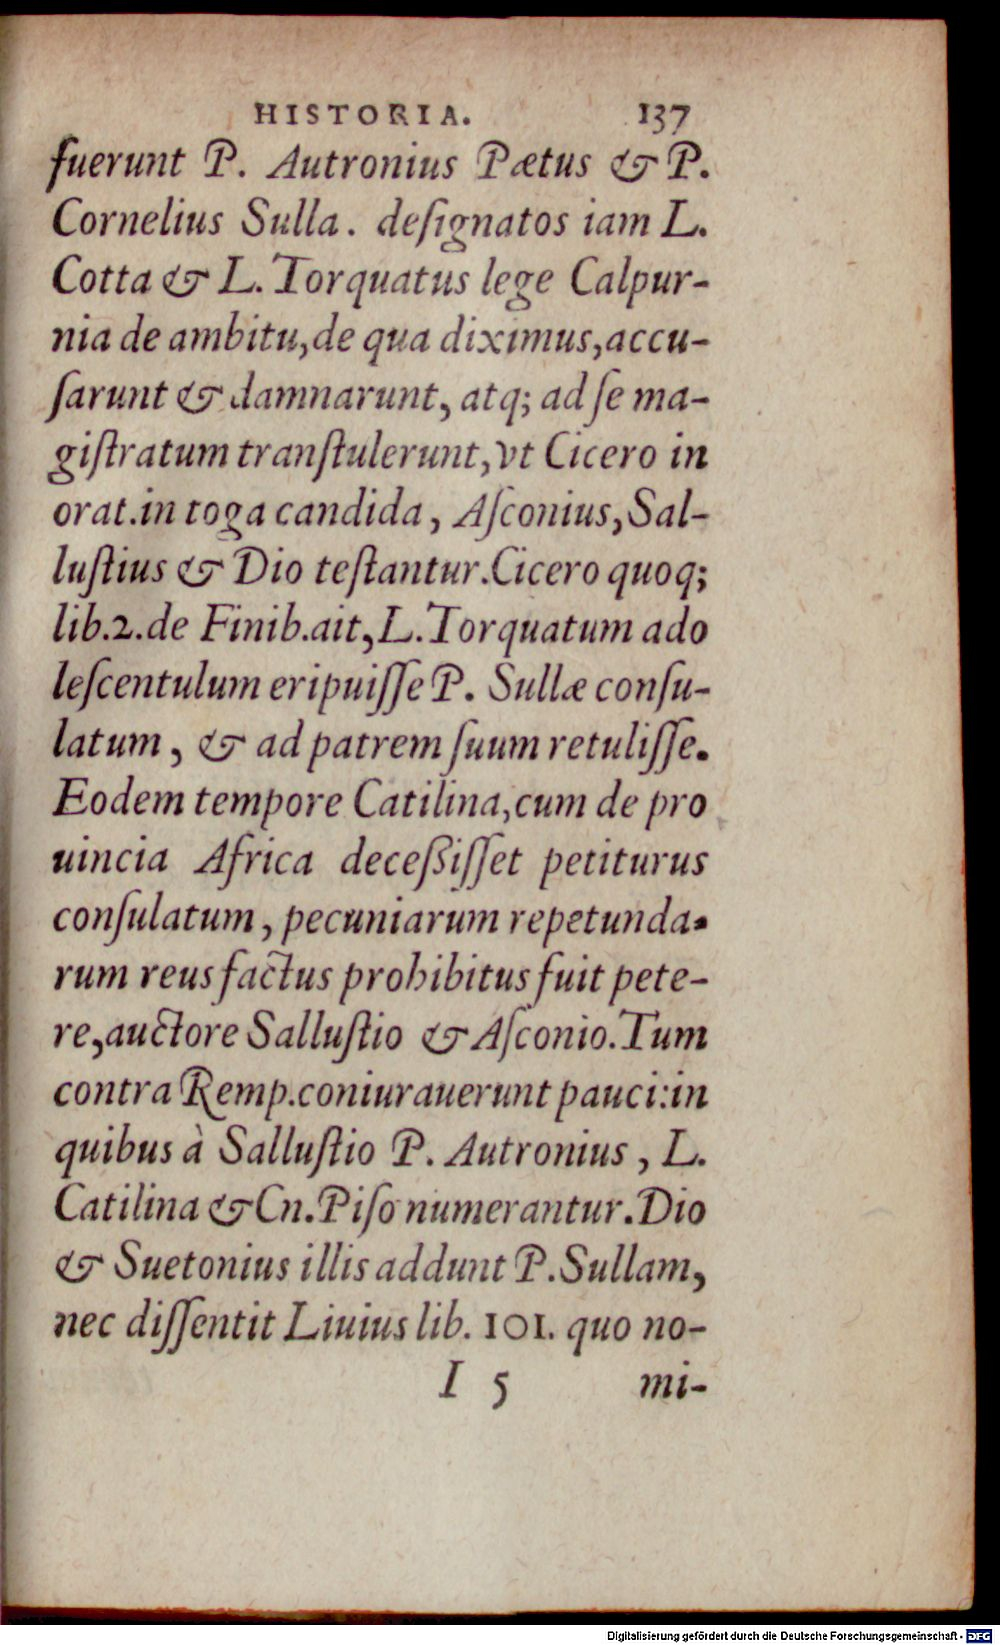 HISTORIA. 137
fuerunt P. Autronius Pætus & P.
Cornelius Sulla. deſignatos iam L.
Cotta & L. Torquatus lege Calpur-
nia de ambitu, de qua diximus, accu-
ſarunt & damnarunt, atq; ad ſe ma-
giſtratum tranſtulerunt, vt Cicero in
orat. in toga candida, Aſconius, Sal-
luſtius & Dio teſtantur. Cicero quoq;
lib. 2. de Finib. ait, L. Torquatum ado
leſcentulum eripuiſſe P. Sullæ conſu-
latum, & ad patrem ſuum retuliſſe.
Eodem tempore Catilina, cum de pro
uincia Africa deceßiſſet petiturus
conſulatum, pecuniarum repetunda-
rum reus factus prohibitus fuit pete-
re, auctore Salluſtio & Aſconio. Tum
contra Remp. coniurauerunt pauci: in
quibus à Salluſtio P. Autronius, L.
Catilina & Cn. Piſo numerantur. Dio
& Suetonius illis addunt P. Sullam,
nec diſſentit Liuius lib. 101. quo no-
I 5 mi-
Digitalisierung gefördert durch die Deutsche Forschungsgemeinschaft - DFG